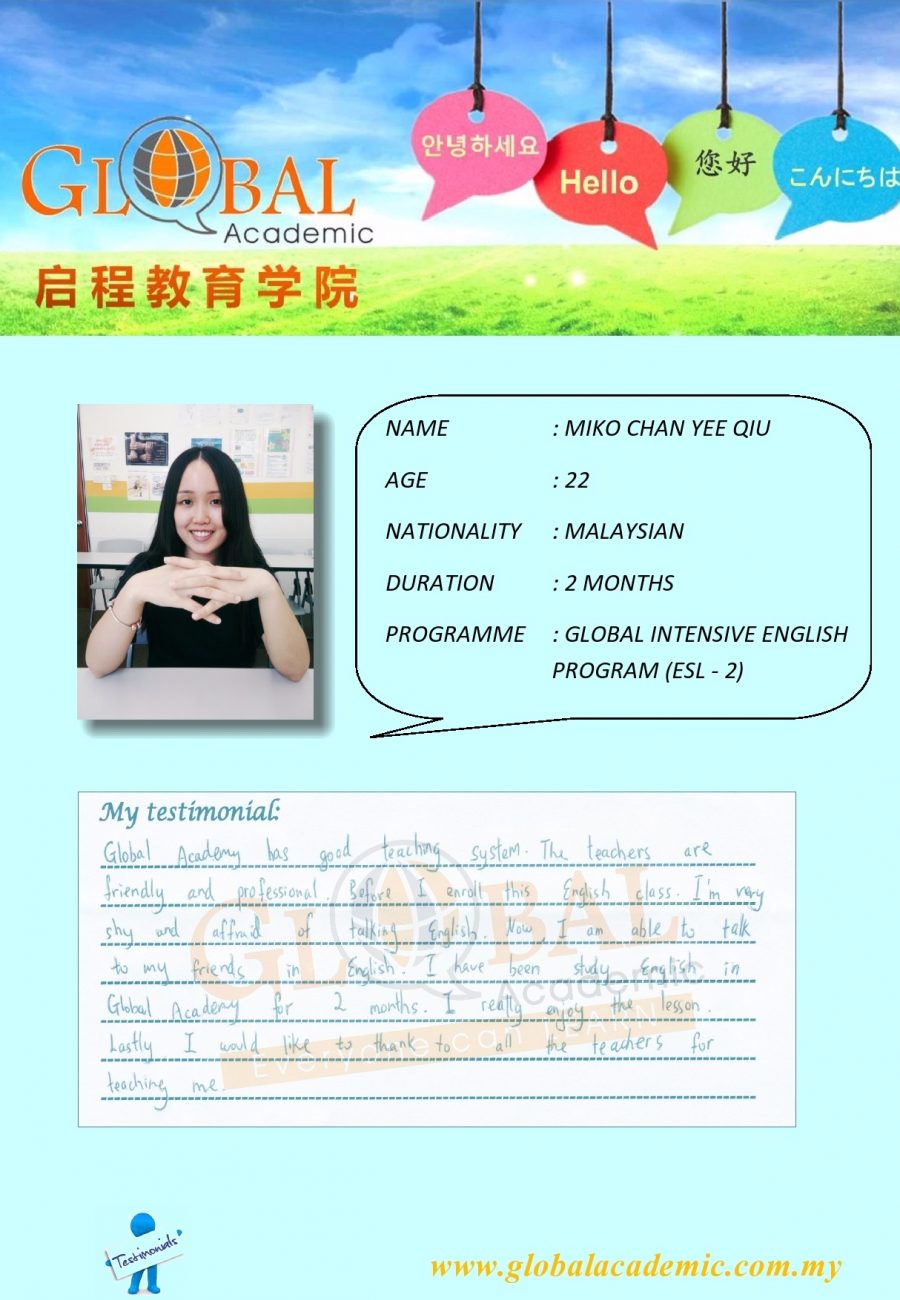 안녕하세요
Hello
您好
こんにちは
GLOBAL
Academic
启程教育学院
NAME : MIKO CHAN YEE QIU
AGE : 22
NATIONALITY : MALAYSIAN
DURATION : 2 MONTHS
PROGRAMME : GLOBAL INTENSIVE ENGLISH
PROGRAM (ESL - 2)
My testimonial:
Global Academy has good teaching system. The teachers are
friendly and professional. Before I enroll this English class. I'm very
shy and affraid of talking English. Now, I am able to talk
to my friends in English. I have been study English in
Global Academy for 2 months. I really enjoy the lesson.
Lastly I would like to thank to all the teachers for
teaching me.
GLOBAL
Academic
Everyone can LEARN
Testimonials
www.globalacademic.com.my